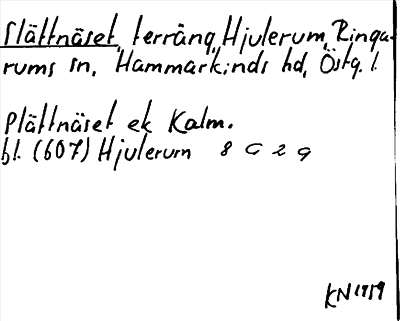 Slättnäset, terräng, Hjulerum, Ringa-
rums sn, Hammarkinds hd, Östg. l.
Plättnäset ek Kalm.
bl. (607) Hjulerum 8 G 2 g
KN 1959